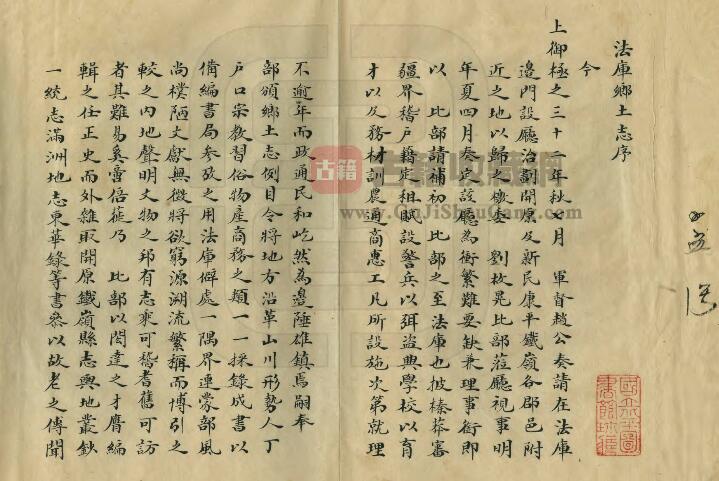 法庫鄉土志序
今
上御極之三十二年秋月 軍督趙公奏請在法庫
邊門設廳治劃開原及新民康平鐵嶺各郡邑附
近之地以歸之檄委 劉枚晃比部蒞廳視事明
年夏四月奏定該廳為衝繁難要缺兼理事銜即
以 比部請補初 比部之至法庫也披榛莽審
疆界稽戶籍定租賦設警兵以弭盜興學校以育
才以及務材訓農通商惠工凡所設施次第就理
不逾年而政通民和屹然為邊陲雄鎮焉嗣奉
部頒鄉土志例目令將地方沿革山川形勢人丁
戶口宗教習俗物產商務之類一一採錄成書以
備編書局參攷之用法庫僻處一隅界連蒙部風
尚樸陋文獻無徵將欲窮源溯流繁稱而博引之
較之內地聲明文物之邦有志乘可稽耆舊可訪
者其難易奚啻倍蓰乃 比部以閎達之才膺編
輯之任正史而外雜取開原鐵嶺縣志輿地叢鈔
一統志滿洲地志東華錄等書參以故老之傳聞
古籍
古籍收藏网
www.GuJiShouCang.com